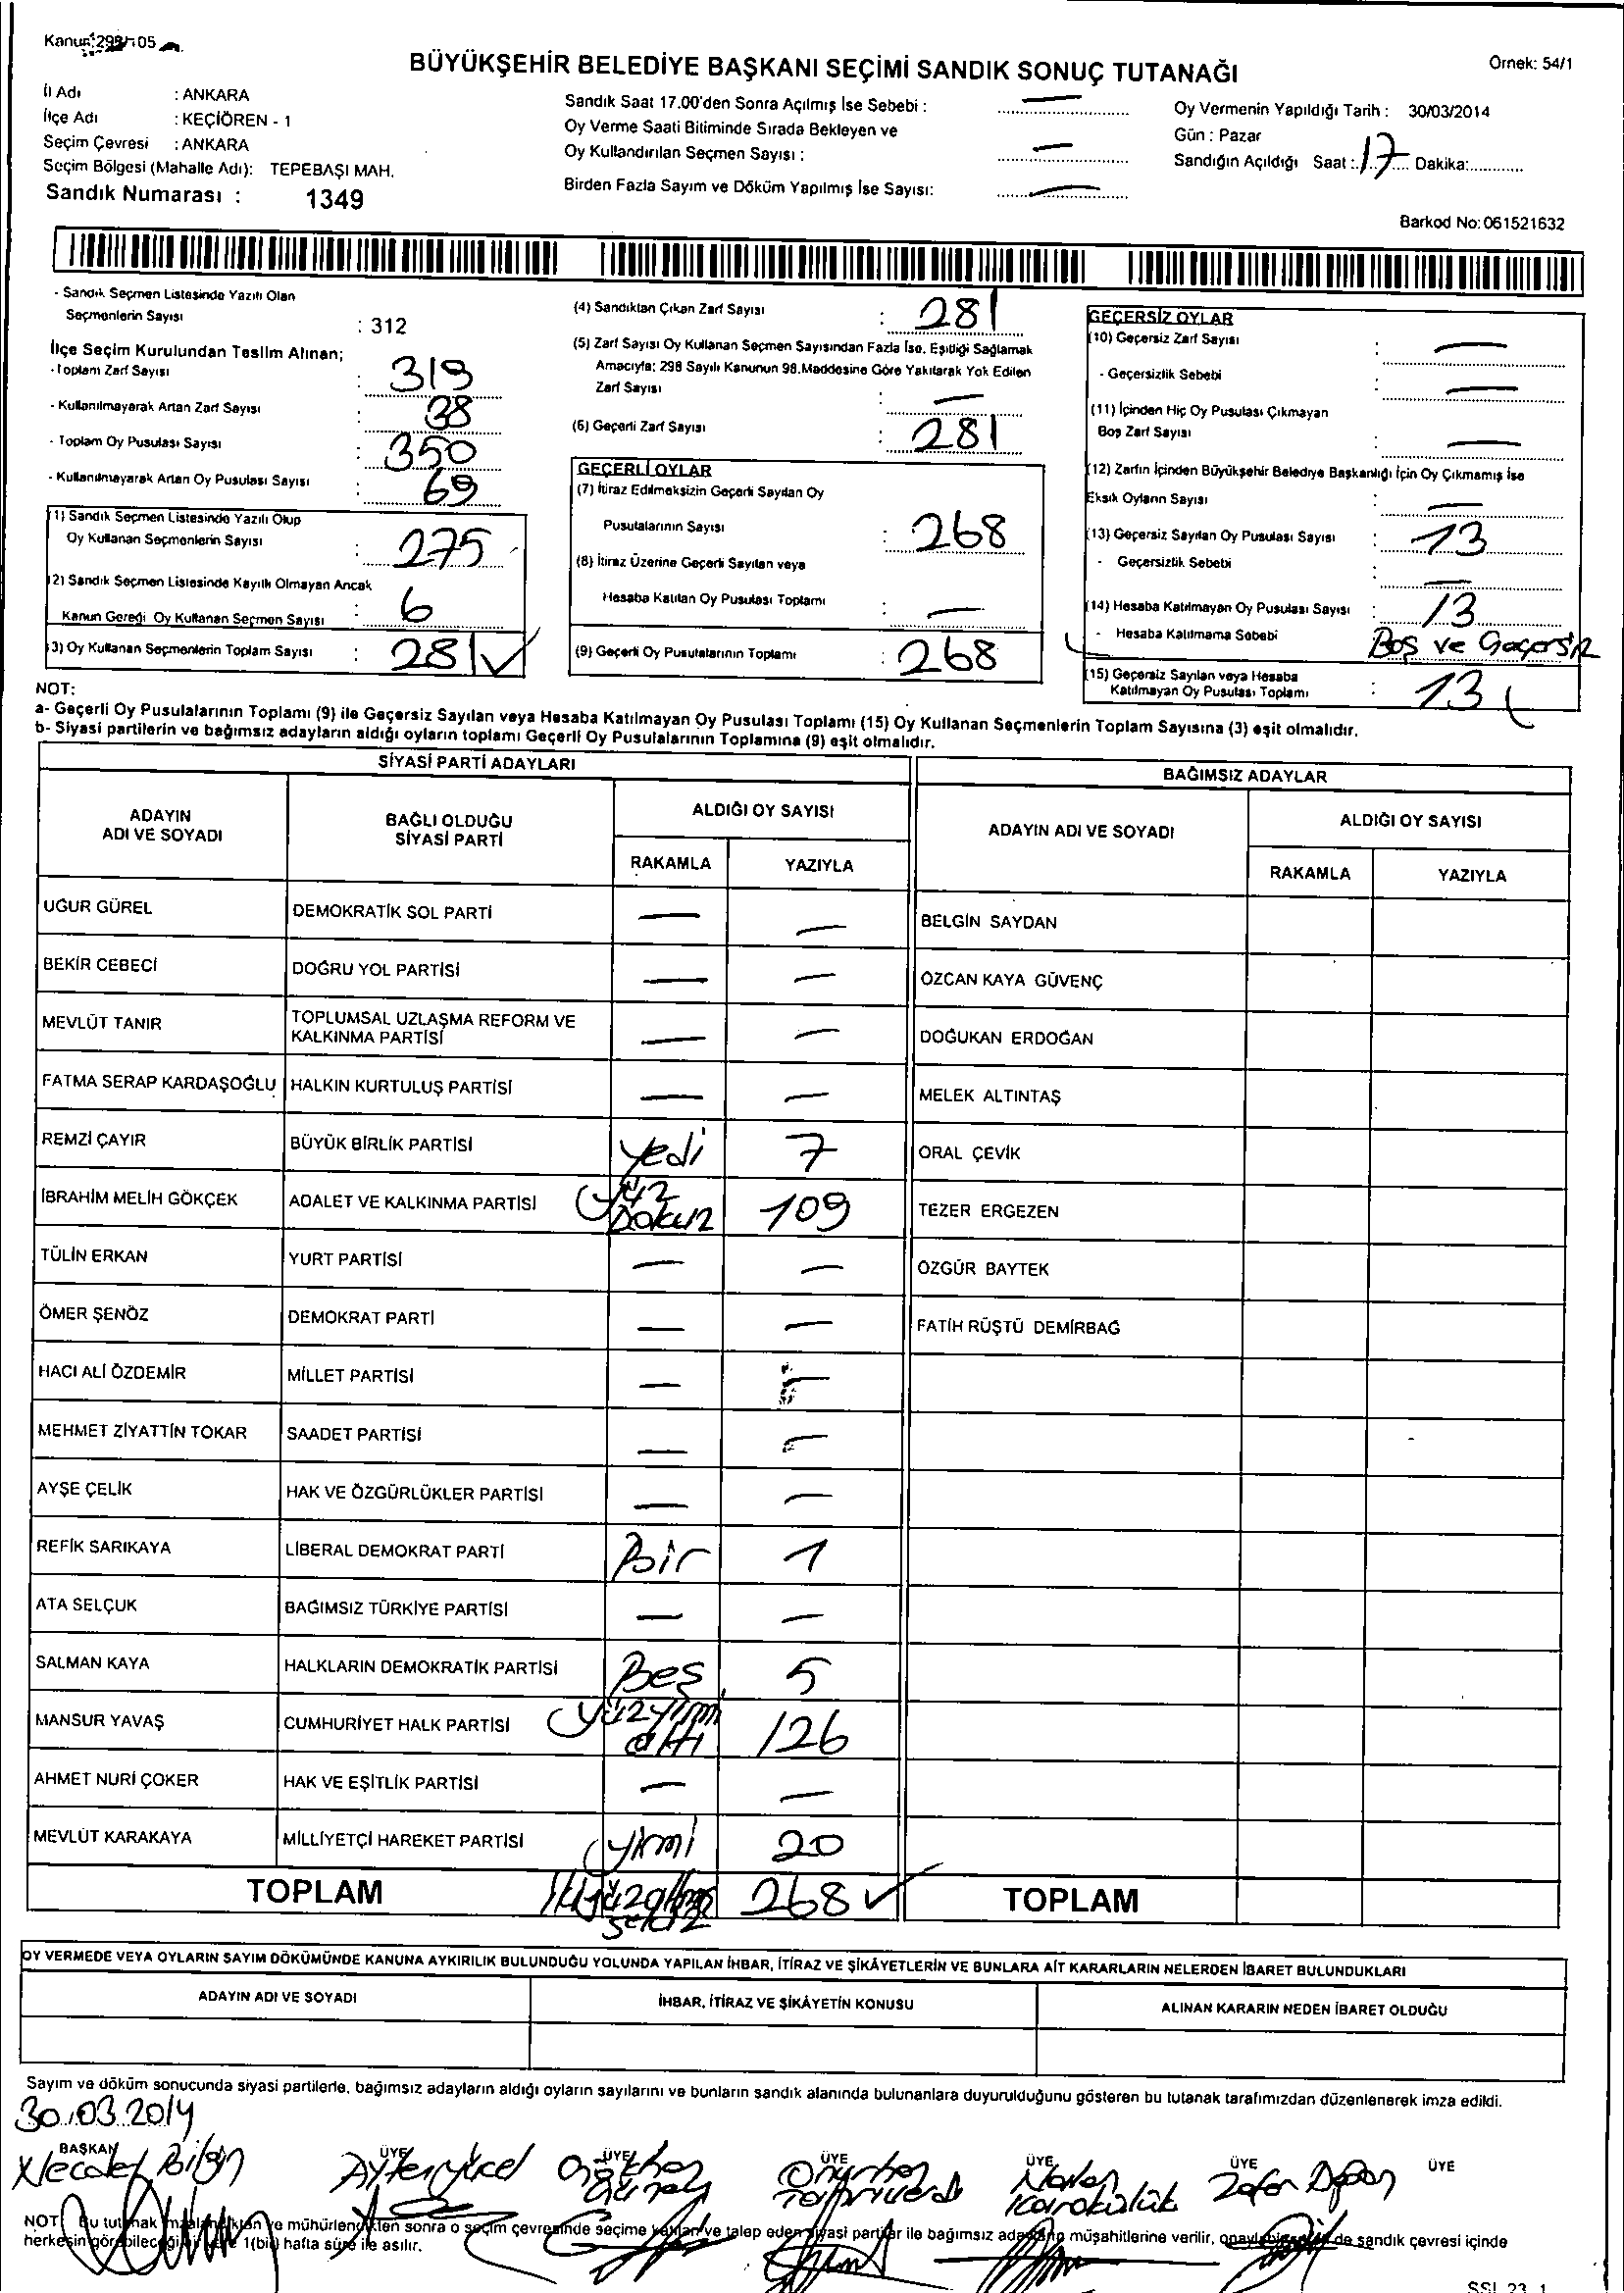 BÜYÜKŞEHİR BELEDİYE BAŞKANI SEÇİMİ SANDIK SONUÇ TUTANAĞI
Örnek: 54/1
İl Adı : ANKARA
İlçe Adı : KEÇİÖREN - 1
Seçim Çevresi : ANKARA
Seçim Bölgesi (Mahalle Adı): TEPEBAŞI MAH.
Sandık Numarası : 1349
Sandık Saat 17.00'den Sonra Açılmış İse Sebebi : —
Oy Verme Saati Bitiminde Sırada Bekleyen ve
Oy Kullandırılan Seçmen Sayısı : —
Birden Fazla Sayım ve Döküm Yapılmış İse Sayısı: —
Oy Vermenin Yapıldığı Tarih : 30/03/2014
Gün : Pazar
Sandığın Açıldığı Saat : 17 Dakika:
Barkod No: 061521632
- Sandık Seçmen Listesinde Yazılı Olan
Seçmenlerin Sayısı : 312
İlçe Seçim Kurulundan Teslim Alınan;
- Toplam Zarf Sayısı : 319
- Kullanılmayarak Artan Zarf Sayısı : 38
- Toplam Oy Pusulası Sayısı : 350
- Kullanılmayarak Artan Oy Pusulası Sayısı : 69
(1) Sandık Seçmen Listesinde Yazılı Olup
Oy Kullanan Seçmenlerin Sayısı : 275
(2) Sandık Seçmen Listesinde Kayıtlı Olmayan Ancak
Kanun Gereği Oy Kullanan Seçmen Sayısı : 6
(3) Oy Kullanan Seçmenlerin Toplam Sayısı : 281 ✓
(4) Sandıktan Çıkan Zarf Sayısı : 281
(5) Zarf Sayısı Oy Kullanan Seçmen Sayısından Fazla İse, Eşitliği Sağlamak
Amacıyla; 298 Sayılı Kanunun 98.Maddesine Göre Yakılarak Yok Edilen
Zarf Sayısı : —
(6) Geçerli Zarf Sayısı : 281
GEÇERLİ OYLAR
(7) İtiraz Edilmeksizin Geçerli Sayılan Oy
Pusulalarının Sayısı : 268
(8) İtiraz Üzerine Geçerli Sayılan veya
Hesaba Katılan Oy Pusulası Toplamı : —
(9) Geçerli Oy Pusulalarının Toplamı : 268
GEÇERSİZ OYLAR
(10) Geçersiz Zarf Sayısı : —
- Geçersizlik Sebebi : —
(11) İçinden Hiç Oy Pusulası Çıkmayan
Boş Zarf Sayısı : —
(12) Zarfın İçinden Büyükşehir Belediye Başkanlığı İçin Oy Çıkmamış İse
Eksik Oyların Sayısı : —
(13) Geçersiz Sayılan Oy Pusulası Sayısı : 13
- Geçersizlik Sebebi : —
(14) Hesaba Katılmayan Oy Pusulası Sayısı : 13
- Hesaba Katılmama Sebebi Boş ve Geçersiz
(15) Geçersiz Sayılan veya Hesaba
Katılmayan Oy Pusulası Toplamı : 13
NOT:
a- Geçerli Oy Pusulalarının Toplamı (9) ile Geçersiz Sayılan veya Hesaba Katılmayan Oy Pusulası Toplamı (15) Oy Kullanan Seçmenlerin Toplam Sayısına (3) eşit olmalıdır.
b- Siyasi partilerin ve bağımsız adayların aldığı oyların toplamı Geçerli Oy Pusulalarının Toplamına (9) eşit olmalıdır.
SİYASİ PARTİ ADAYLARI
ADAYIN ADI VE SOYADI BAĞLI OLDUĞU SİYASİ PARTİ ALDIĞI OY SAYISI
RAKAMLA YAZIYLA
UĞUR GÜREL DEMOKRATİK SOL PARTİ — —
BEKİR CEBECİ DOĞRU YOL PARTİSİ — —
MEVLÜT TANIR TOPLUMSAL UZLAŞMA REFORM VE KALKINMA PARTİSİ — —
FATMA SERAP KARDAŞOĞLU HALKIN KURTULUŞ PARTİSİ — —
REMZİ ÇAYIR BÜYÜK BİRLİK PARTİSİ yedi 7
İBRAHİM MELİH GÖKÇEK ADALET VE KALKINMA PARTİSİ yüz Dokuz 109
TÜLİN ERKAN YURT PARTİSİ — —
ÖMER ŞENÖZ DEMOKRAT PARTİ — —
HACI ALİ ÖZDEMİR MİLLET PARTİSİ — —
MEHMET ZİYATTİN TOKAR SAADET PARTİSİ — —
AYŞE ÇELİK HAK VE ÖZGÜRLÜKLER PARTİSİ — —
REFİK SARIKAYA LİBERAL DEMOKRAT PARTİ Bir 1
ATA SELÇUK BAĞIMSIZ TÜRKİYE PARTİSİ — —
SALMAN KAYA HALKLARIN DEMOKRATİK PARTİSİ Beş 5
MANSUR YAVAŞ CUMHURİYET HALK PARTİSİ yüzyirmi altı 126
AHMET NURİ ÇOKER HAK VE EŞİTLİK PARTİSİ — —
MEVLÜT KARAKAYA MİLLİYETÇİ HAREKET PARTİSİ yirmi 20
TOPLAM ikiyüzaltmış sekiz 268 ✓
BAĞIMSIZ ADAYLAR
ADAYIN ADI VE SOYADI ALDIĞI OY SAYISI
RAKAMLA YAZIYLA
BELGİN SAYDAN
ÖZCAN KAYA GÜVENÇ
DOĞUKAN ERDOĞAN
MELEK ALTINTAŞ
ORAL ÇEVİK
TEZER ERGEZEN
ÖZGÜR BAYTEK
FATİH RÜŞTÜ DEMİRBAĞ
TOPLAM
OY VERMEDE VEYA OYLARIN SAYIM DÖKÜMÜNDE KANUNA AYKIRILIK BULUNDUĞU YOLUNDA YAPILAN İHBAR, İTİRAZ VE ŞİKÂYETLERİN VE BUNLARA AİT KARARLARIN NELERDEN İBARET BULUNDUKLARI
ADAYIN ADI VE SOYADI İHBAR, İTİRAZ VE ŞİKÂYETİN KONUSU ALINAN KARARIN NEDEN İBARET OLDUĞU
Sayım ve döküm sonucunda siyasi partilerle, bağımsız adayların aldığı oyların sayılarını ve bunların sandık alanında bulunanlara duyurulduğunu gösteren bu tutanak tarafımızdan düzenlenerek imza edildi.
30.03.2014
BAŞKAN ÜYE ÜYE ÜYE ÜYE ÜYE ÜYE
Necdet Bilgin Ayten yücel Gökhan Onurhan Karakülük Zafer
NOT: Bu tutanak ve mühürlendikten sonra o seçim çevresinde seçime katılan ve talep eden siyasi partiler ile bağımsız adayların müşahitlerine verilir, de sandık çevresi içinde
herkesin görebileceği bir yere 1(bir) hafta süre ile asılır.
SSL 23 1